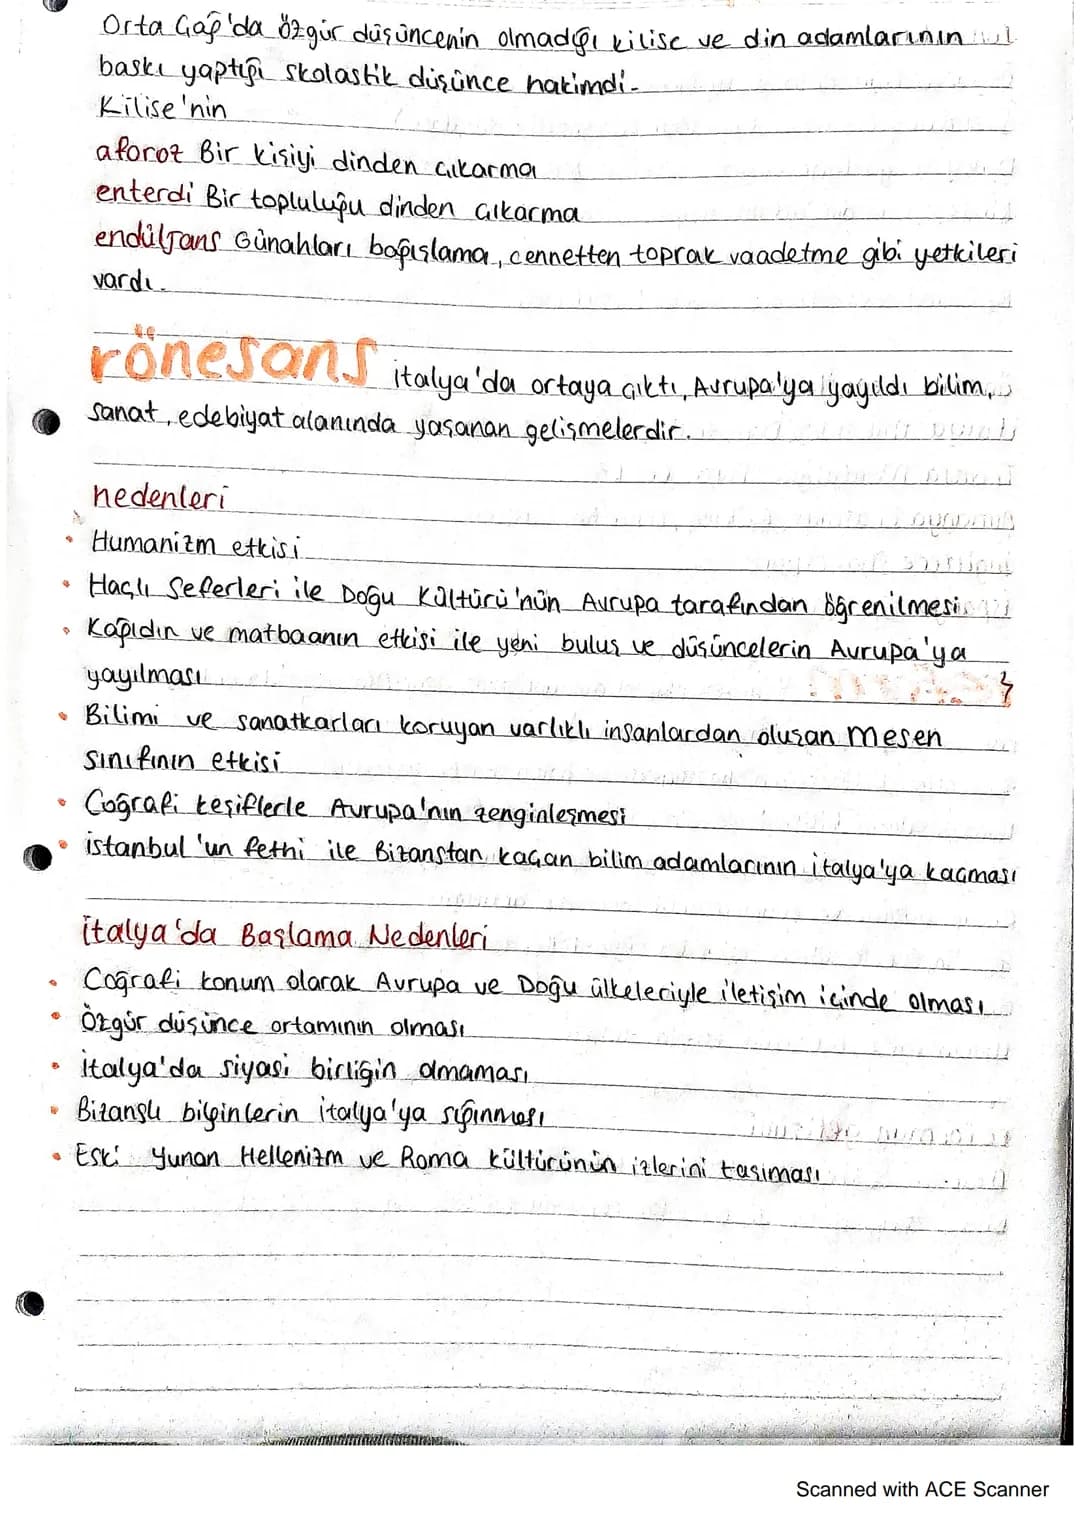 Orta Çağ'da özgür düşüncenin olmadığı kilise ve din adamlarının
baskı yaptığı skolastik düşünce hakimdi.
Kilise'nin
aforoz Bir kişiyi dinden çıkarma
enterdi Bir topluluğu dinden çıkarma
endüljans Günahları bağışlama, cennetten toprak vaadetme gibi yetkileri
vardı.
rönesans italya'da ortaya çıktı, Avrupa'ya yayıldı bilim,
sanat, edebiyat alanında yaşanan gelişmelerdir.
nedenleri
• Humanizm etkisi
• Haçlı Seferleri ile Doğu Kültürü'nün Avrupa tarafından öğrenilmesi
• Kağıdın ve matbaanın etkisi ile yeni buluş ve düşüncelerin Avrupa'ya
yayılması
• Bilimi ve sanatkarları koruyan varlıklı insanlardan oluşan mesen
sınıfının etkisi
• Coğrafi keşiflerle Avrupa'nın zenginleşmesi
• istanbul'un fethi ile Bizanstan kaçan bilim adamlarının italya'ya kaçması
italya'da Başlama Nedenleri
• Coğrafi konum olarak Avrupa ve Doğu ülkeleriyle iletişim içinde olması
• Özgür düşünce ortamının olması
• italya'da siyasi birliğin olmaması
• Bizanslı bilginlerin italya'ya sığınması
• Eski Yunan Hellenizm ve Roma kültürünün izlerini taşıması
Scanned with ACE Scanner